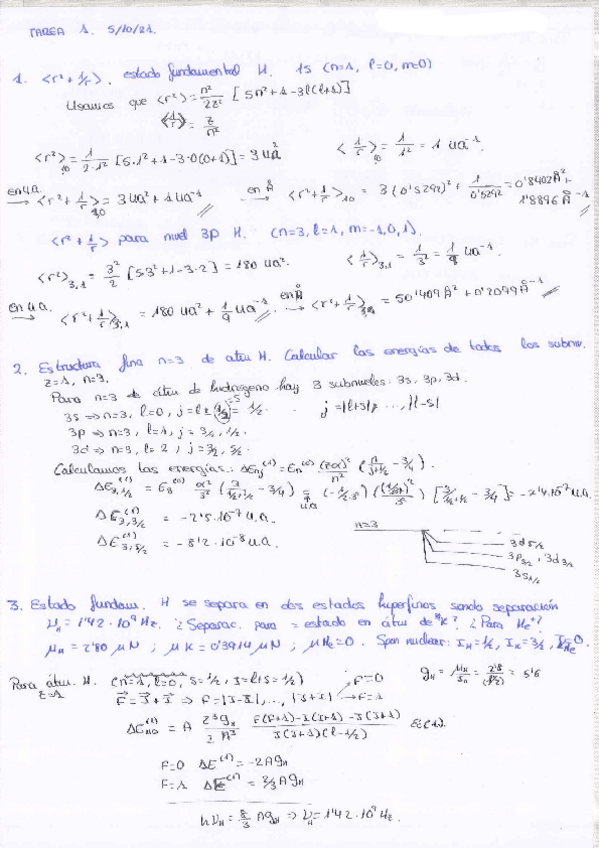 TAREA 1. 5/10/21.
1. <r² + 1/r>. estado fundamental H. 1s (n=1, l=0, m=0)
Usamos que <r²> = n²/2z² [5n²+1-3l(l+1)]
<1/r> = z/n²
<r²>₁₀ = 1/2·1² [5·1²+1-3·0(0+1)] = 3 ua² <1/r>₁₀ = 1/1² = 1 ua⁻¹.
en u.a. → <r²+1/r>₁,₀ = 3ua² + 1ua⁻¹ en Å → <r²+1/r>₁₀ = 3(0'5292)² + 1/0'5292 = 0'8402Å² + 1'8896 Å⁻¹
<r²+1/r> para nivel 3p H. (n=3, l=1, m=-1,0,1).
<r²>₃,₁ = 3²/2 [5·3²+1-3·2] = 180 ua². <1/r>₃,₁ = 1/3² = 1/9 ua⁻¹.
en u.a. → <r²+1/r>₃,₁ = 180 ua² + 1/9 ua⁻¹. en Å → <r²+1/r>₃,₁ = 50'409 Å² + 0'2099 Å⁻¹
2. Estructura fina n=3 de atm H. Calcular las energías de todos los subniv.
z=1, n=3.
Para n=3 de átm de hidrógeno hay 3 subniveles: 3s, 3p, 3d.
3s ⇒ n=3, l=0, j=l± 1/2 =s = 1/2. j=|l+s|, ..., |l-s|
3p ⇒ n=3, l=1, j= 3/2, 1/2.
3d ⇒ n=3, l=2, j= 3/2, 5/2.
Calculamos las energías: ΔE_nj⁽¹⁾ = E_n⁽⁰⁾ (zα)²/n² (n/j+1/2 - 3/4).
ΔE₃,₁/₂⁽¹⁾ = E₃⁽⁰⁾ α²/3² (3/1/2+1/2 - 3/4) = u.a.
ΔE₃,₃/₂⁽¹⁾ = -2'5·10⁻⁷ u.a.
ΔE₃,₅/₂⁽¹⁾ = -8'2·10⁻⁸ u.a.
n=3
3d₅/₂
3p₃/₂, 3d₃/₂
3s₁/₂
3. Estado fundam. H se separa en dos estados hiperfinos siendo separación
ν_H = 1'42·10⁹ Hz. ¿Separac. para = estado en átm de K? ¿Para He?
μ_H = 2'80 μN ; μ_K = 0'3914 μN ; μ_He = 0. Spin nuclear: I_H = 1/2, I_K = 3/2, I_He = 0
Para átm. H. (n=1, l=0, s=1/2, j=l+s=1/2) F=0 g_H = μ_H/I_H = 2'8/(1/2) = 5'6
z=1 F = J + I ⇒ F = |J-I|, ..., |J+I| F=1
ΔE₁,₀⁽¹⁾ = A z³g_H/2 n³ F(F+1)-I(I+1)-J(J+1)/J(J+1)(l-1/2)
F=0 ΔE⁽¹⁾ = -2Ag_H
F=1 ΔE⁽¹⁾ = 2/3 Ag_H
hν_H = 8/3 Ag_H ⇒ ν_H = 1'42·10⁹ Hz.